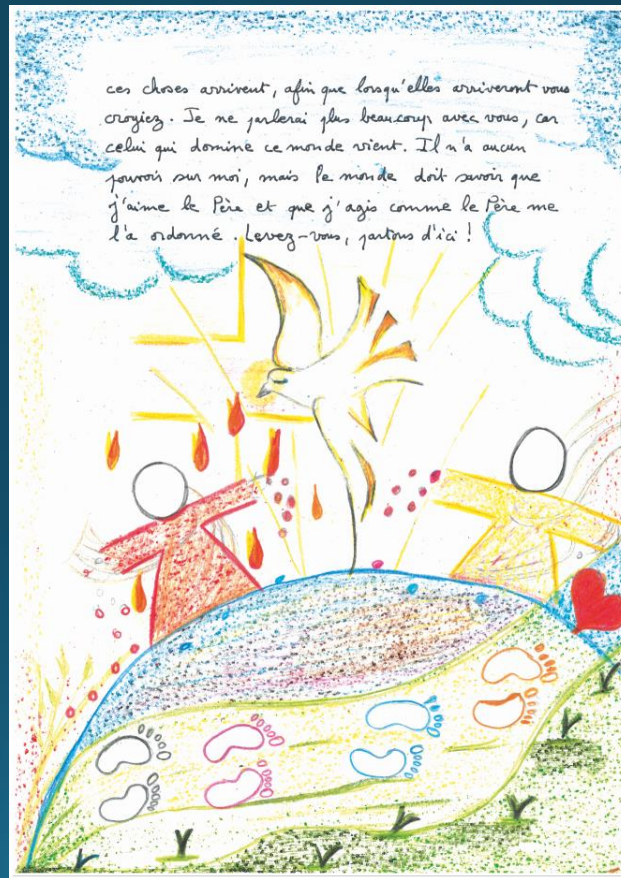 ces choses arrivent, afin que lorsqu'elles arriveront vous
croyiez. Je ne parlerai plus beaucoup avec vous, car
celui qui domine ce monde vient. Il n'a aucun
pouvoir sur moi, mais le monde doit savoir que
j'aime le Père et que j'agis comme le Père me
l'a ordonné. Levez-vous, partons d'ici !